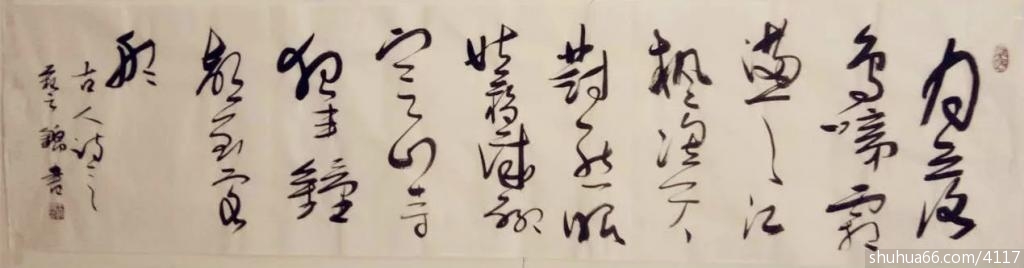 月落
烏啼霜
滿天江
楓漁火
對愁眠
姑蘇城外
寒山寺
夜半鐘
聲到客
船
古人詩之
錦書
shuhua66.com/4117